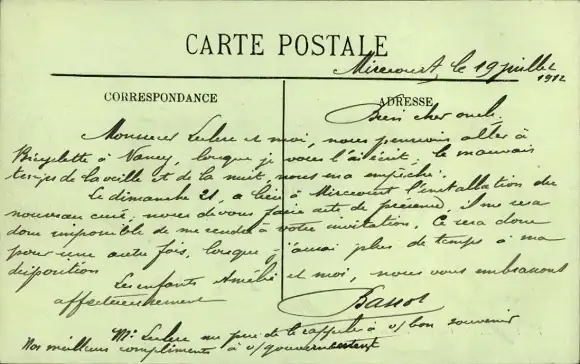 CARTE POSTALE
Mirecourt, le 19 juillet
1912
CORRESPONDANCE
ADRESSE
Bien cher oncle,
Monsieur Leclerc et moi, nous pensions aller à
Bicyclette à Nancy, lorsque je vous l'ai écrit; le mauvais
temps de la veille et de la nuit, nous en a empêché.
Le dimanche 21, a lieu à Mirecourt l'installation du
nouveau curé; nous devons faire acte de présence, il me sera
donc impossible de me rendre à votre invitation. Ce sera donc
pour une autre fois, lorsque j'aurai plus de temps à ma
disposition
Les enfants Amélie et moi, nous vous embrassons
affectueusement
Mr Leclerc me prie de le rappeler à v/ bon souvenir
Nos meilleurs compliments à v/